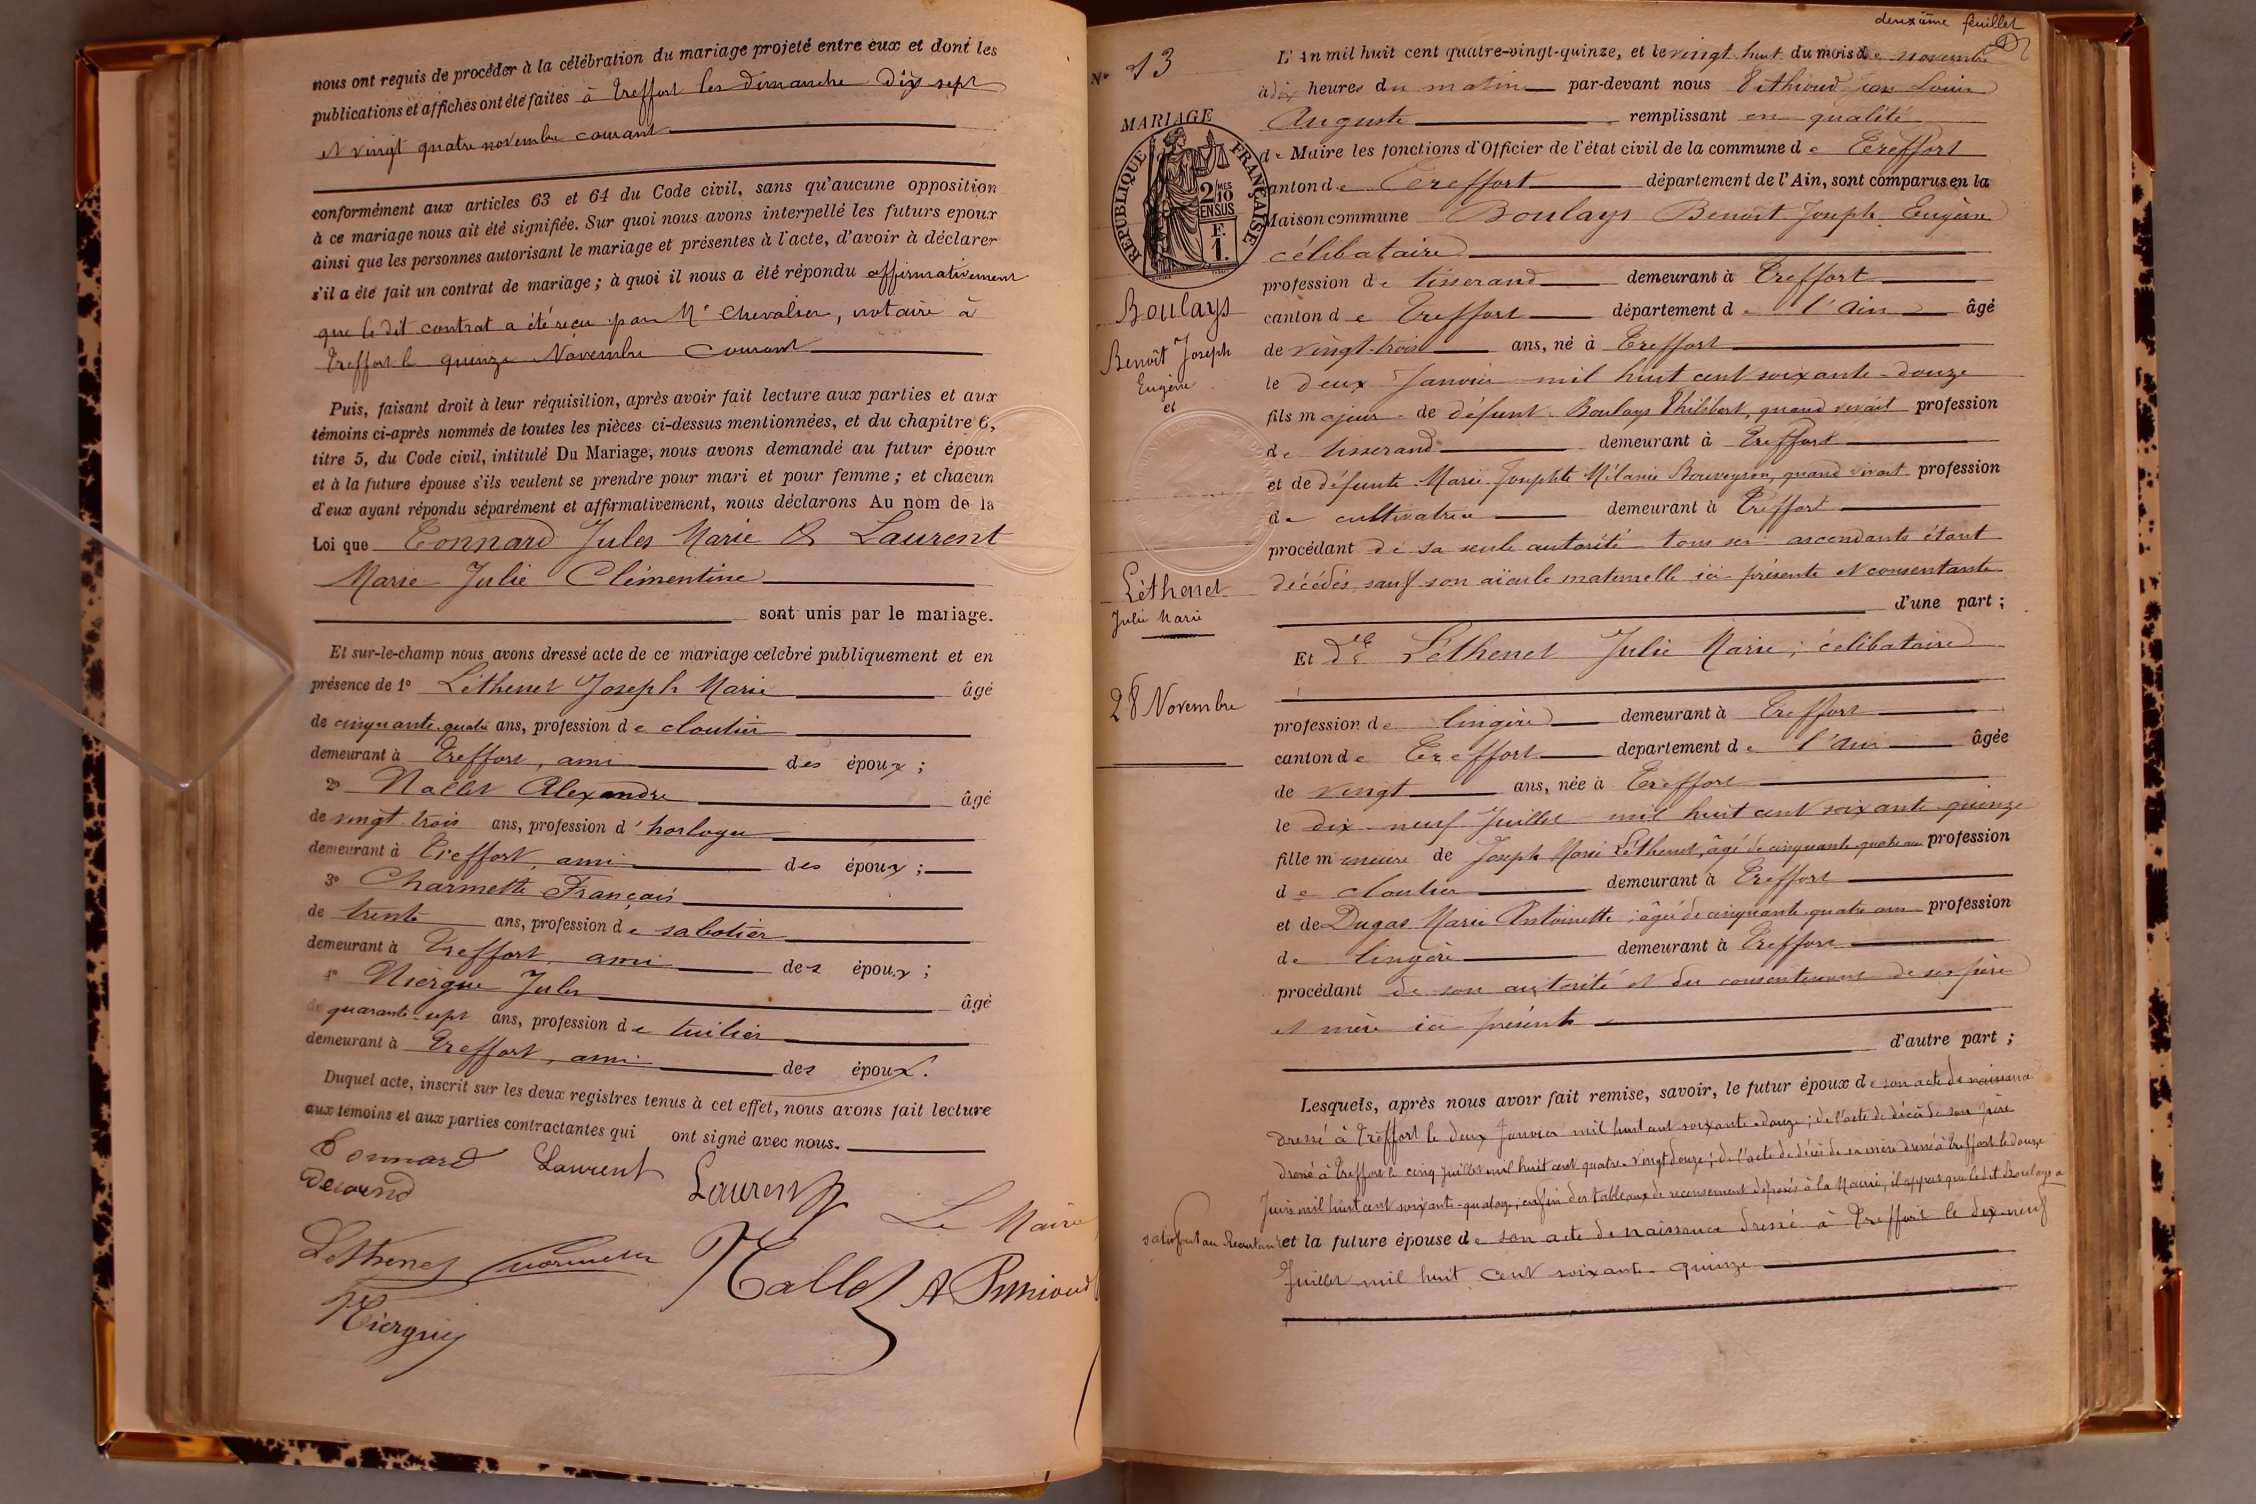 nous ont requis de procéder à la célébration du mariage projeté entre eux et dont les
publications et affiches ont été faites à Treffort les dimanche dix sept
et vingt quatre novembre courant
conformément aux articles 63 et 64 du Code civil, sans qu'aucune opposition
à ce mariage nous ait été signifiée. Sur quoi nous avons interpellé les futurs epoux
ainsi que les personnes autorisant le mariage et présentes à l'acte, d'avoir à déclarer
s'il a été fait un contrat de mariage ; à quoi il nous a été répondu affirmativement
que le dit contrat a été reçu par Me Chevalier, notaire à
Treffort le quinze Novembre courant
Puis, faisant droit à leur réquisition, après avoir fait lecture aux parties et aux
témoins ci-après nommés de toutes les pièces ci-dessus mentionnées, et du chapitre 6,
titre 5, du Code civil, intitulé Du Mariage, nous avons demandé au futur époux
et à la future épouse s'ils veulent se prendre pour mari et pour femme ; et chacun
d'eux ayant répondu séparément et affirmativement, nous déclarons Au nom de la
Loi que Tonnard Jules Marie & Laurent
Marie Julie Clémentine
sont unis par le mariage.
Et sur-le-champ nous avons dressé acte de ce mariage celebré publiquement et en
présence de 1° Léthenet Joseph Marie âgé
de cinquante quatre ans, profession de cloutier
demeurant à Treffort, ami des époux ;
2° Nallet Alexandre âgé
de vingt trois ans, profession d'horloger
demeurant à Treffort, ami des époux ;
3° Charmette Français
de trente ans, profession de sabotier
demeurant à Treffort, ami des époux ;
4° Niergue Jules âgé
de quarante-sept ans, profession de tuilier
demeurant à Treffort, ami des époux.
Duquel acte, inscrit sur les deux registres tenus à cet effet, nous avons fait lecture
aux témoins et aux parties contractantes qui ont signé avec nous.
Tonnard Laurent Laurent
Le Maire
Léthenet Charmette Nallet
Niergue
deuxième feuillet
N° 13
MARIAGE
RÉPUBLIQUE FRANÇAISE
2/10 MES
EN SUS
F.
1.
Boulays
Benoît Joseph
Eugène
et
Léthenet
Julie Marie
28 Novembre
L'An mil huit cent quatre-vingt-quinze, et le vingt-huit du mois de novembre
à dix heures du matin par-devant nous Pithioud Jean Louis
Auguste remplissant en qualité
de Maire les fonctions d'Officier de l'état civil de la commune de Treffort
canton de Treffort département de l'Ain, sont comparus en la
Maison commune Boulays Benoît Joseph Eugène
célibataire
profession de tisserand demeurant à Treffort
canton de Treffort département de l'Ain âgé
de vingt-trois ans, né à Treffort
le deux Janvier mil huit cent soixante-douze
fils majeur de défunt Boulays Philibert, quand vivait profession
de tisserand demeurant à Treffort
et de défunte Marie Josephte Mélanie Bouveyron, quand vivait profession
de cultivatrice demeurant à Treffort
procédant de sa seule autorité tous ses ascendants étant
décédés sauf son aïeule maternelle ici présente et consentante
d'une part ;
Et Dlle Léthenet Julie Marie, célibataire
profession de lingère demeurant à Treffort
canton de Treffort departement de l'Ain âgée
de vingt ans, née à Treffort
le dix-neuf Juillet mil huit cent soixante-quinze
fille mineure de Joseph Marie Léthenet, âgé de cinquante-quatre ans profession
de cloutier demeurant à Treffort
et de Dugas Marie Antoinette âgée de cinquante quatre ans profession
de lingère demeurant à Treffort
procédant de son autorité et du consentement de ses père
et mère ici présents
d'autre part ;
Lesquels, après nous avoir fait remise, savoir, le futur époux de son acte de naissance
dressé à Treffort le deux Janvier mil huit cent soixante-douze ; de l'acte de décès de son père
dressé à Treffort le cinq Juillet mil huit cent quatre-vingt douze ; de l'acte de décès de sa mère dressé à Treffort le douze
Juin mil huit cent soixante-quatorze ; enfin des tableaux de recensement déposés à la Mairie, il appert que le dit Boulays a
satisfait au Recrutement et la future épouse de son acte de naissance dressé à Treffort le dix-neuf
Juillet mil huit cent soixante-quinze